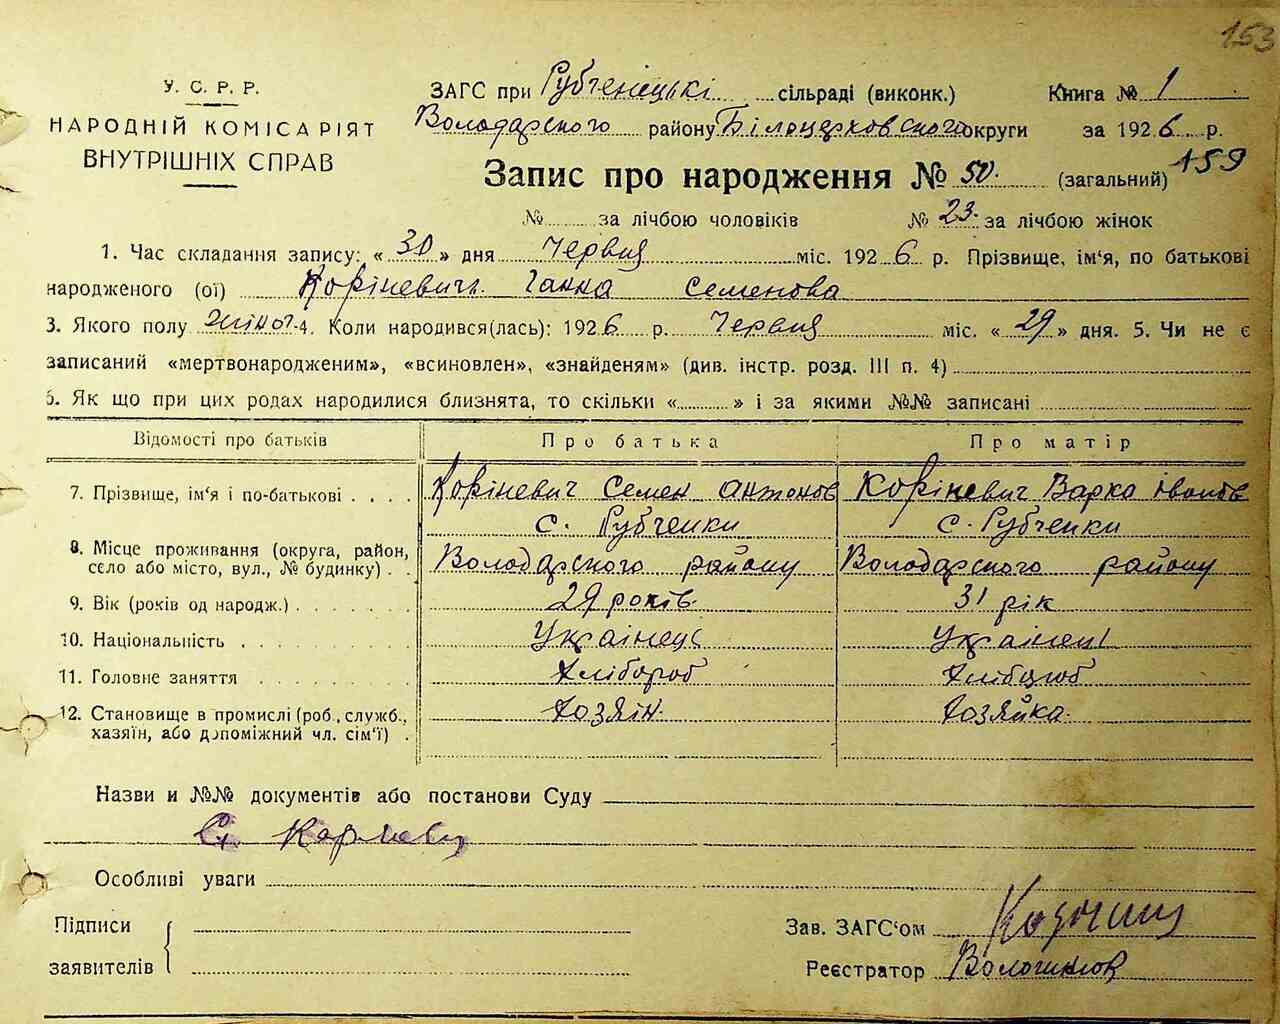 153
У. С. Р. Р.
НАРОДНІЙ КОМІСАРІЯТ
ВНУТРІШНІХ СПРАВ
ЗАГС при Рубченіцькі сільраді (виконк.) Книга № 1
Володарского району Білоцерковского округи за 1926 р.
Запис про народження № 50. (загальний) 159
№ за лічбою чоловіків № 23. за лічбою жінок
1. Час складання запису: « 30 » дня Червня міс. 1926 р. Прізвище, ім‘я, по батькові
народженого (ої) Коріневич Ганна Семенова
3. Якого полу жіноч. 4. Коли народився(лась): 1926 р. Червня міс. « 29 » дня. 5. Чи не є
записаний «мертвонародженим», «всиновлен», «знайденям» (див. інстр. розд. III п. 4)
6. Як що при цих родах народилися близнята, то скільки « » і за якими №№ записані
Відомості про батьків Про батька Про матір
7. Прізвище, ім‘я і по-батькові Коріневич Семен Антонов Коріневич Варка Іванов
с. Рубченки с. Рубченки
8. Місце проживання (округа, район,
село або місто, вул., № будинку) Володарского району Володарского району
9. Вік (років од народж.) 29 років 31 рік
10. Національність Українець Українец
11. Головне заняття Хлібороб Хлібороб
12. Становище в промислі (роб., служб., Хозяін. Хозяйка.
хазяїн, або допоміжний чл. сім‘ї)
Назви и №№ документів або постанови Суду
Особливі уваги
Підписи
заявителів
Зав. ЗАГС‘ом
Реєстратор